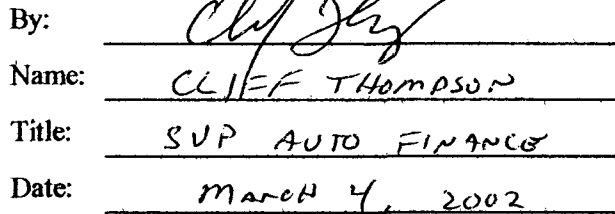 By:
Name: CLIFF THOMPSON
Title: SVP AUTO FINANCE
Date: MARCH 4, 2002